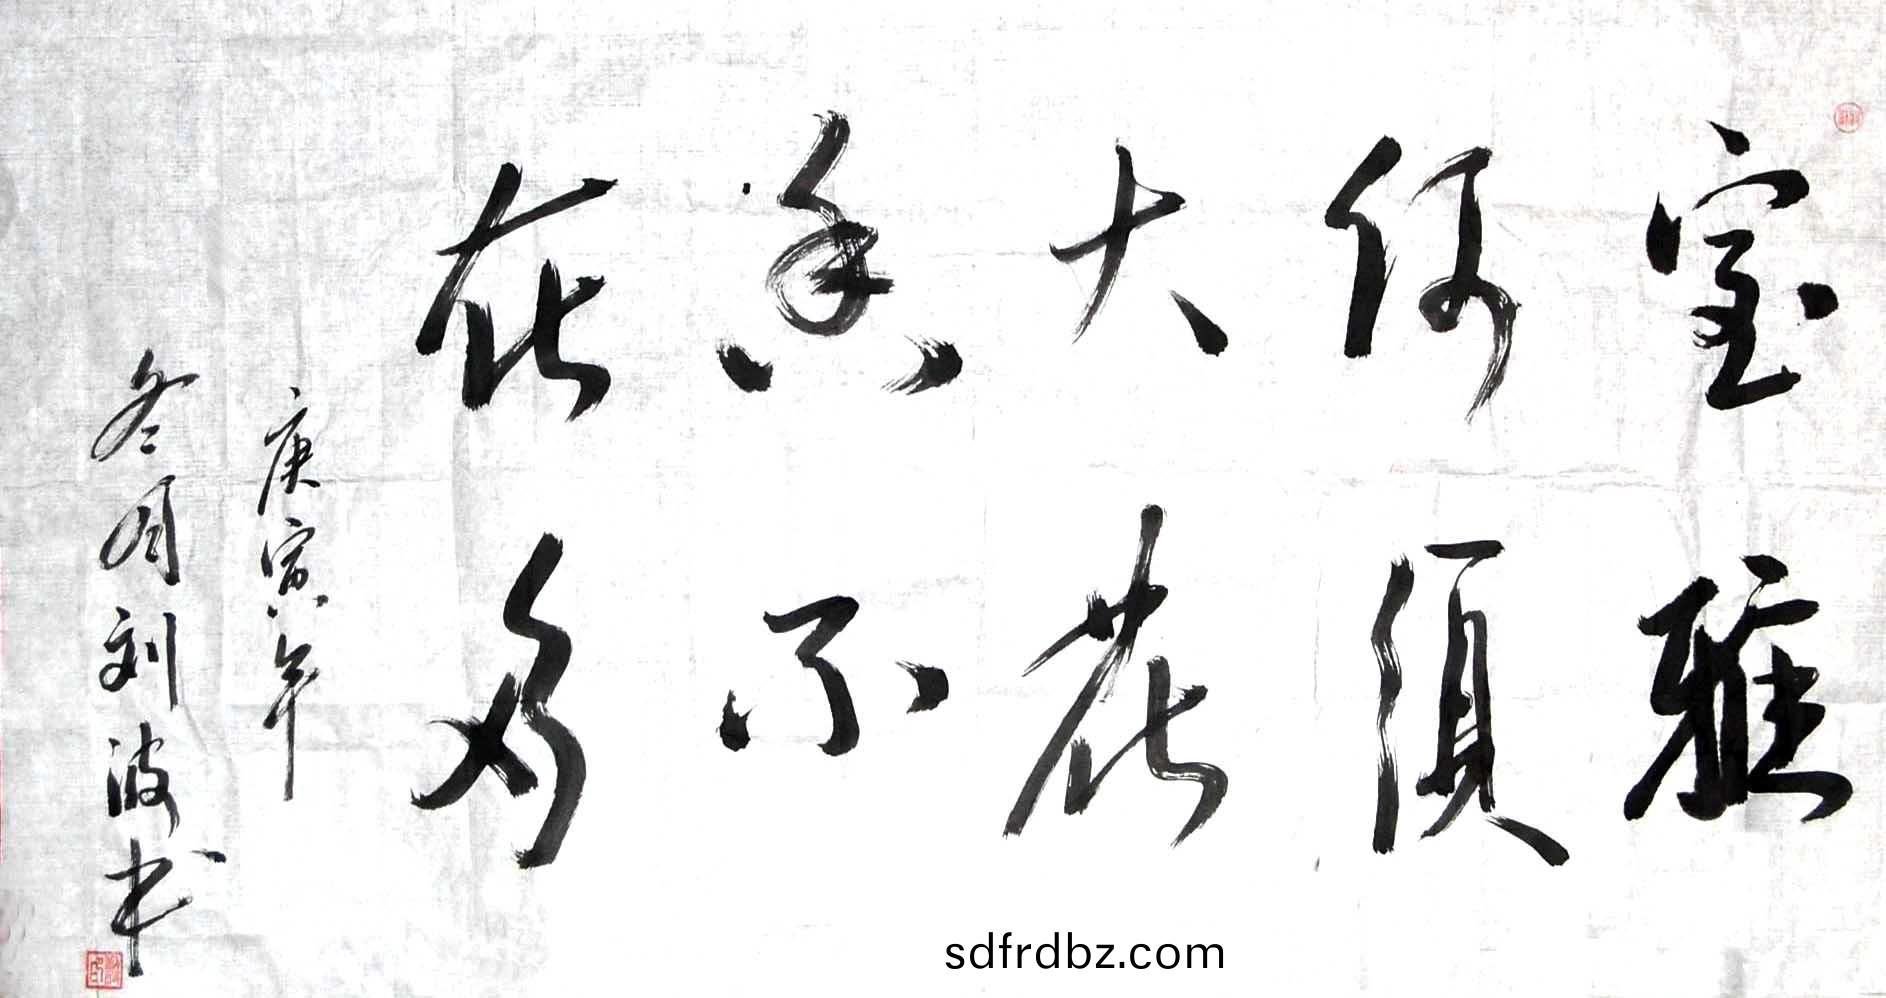 室雅
何须
大花
香不
在多
庚寅年
冬月刘波书
sdfrdbz.com